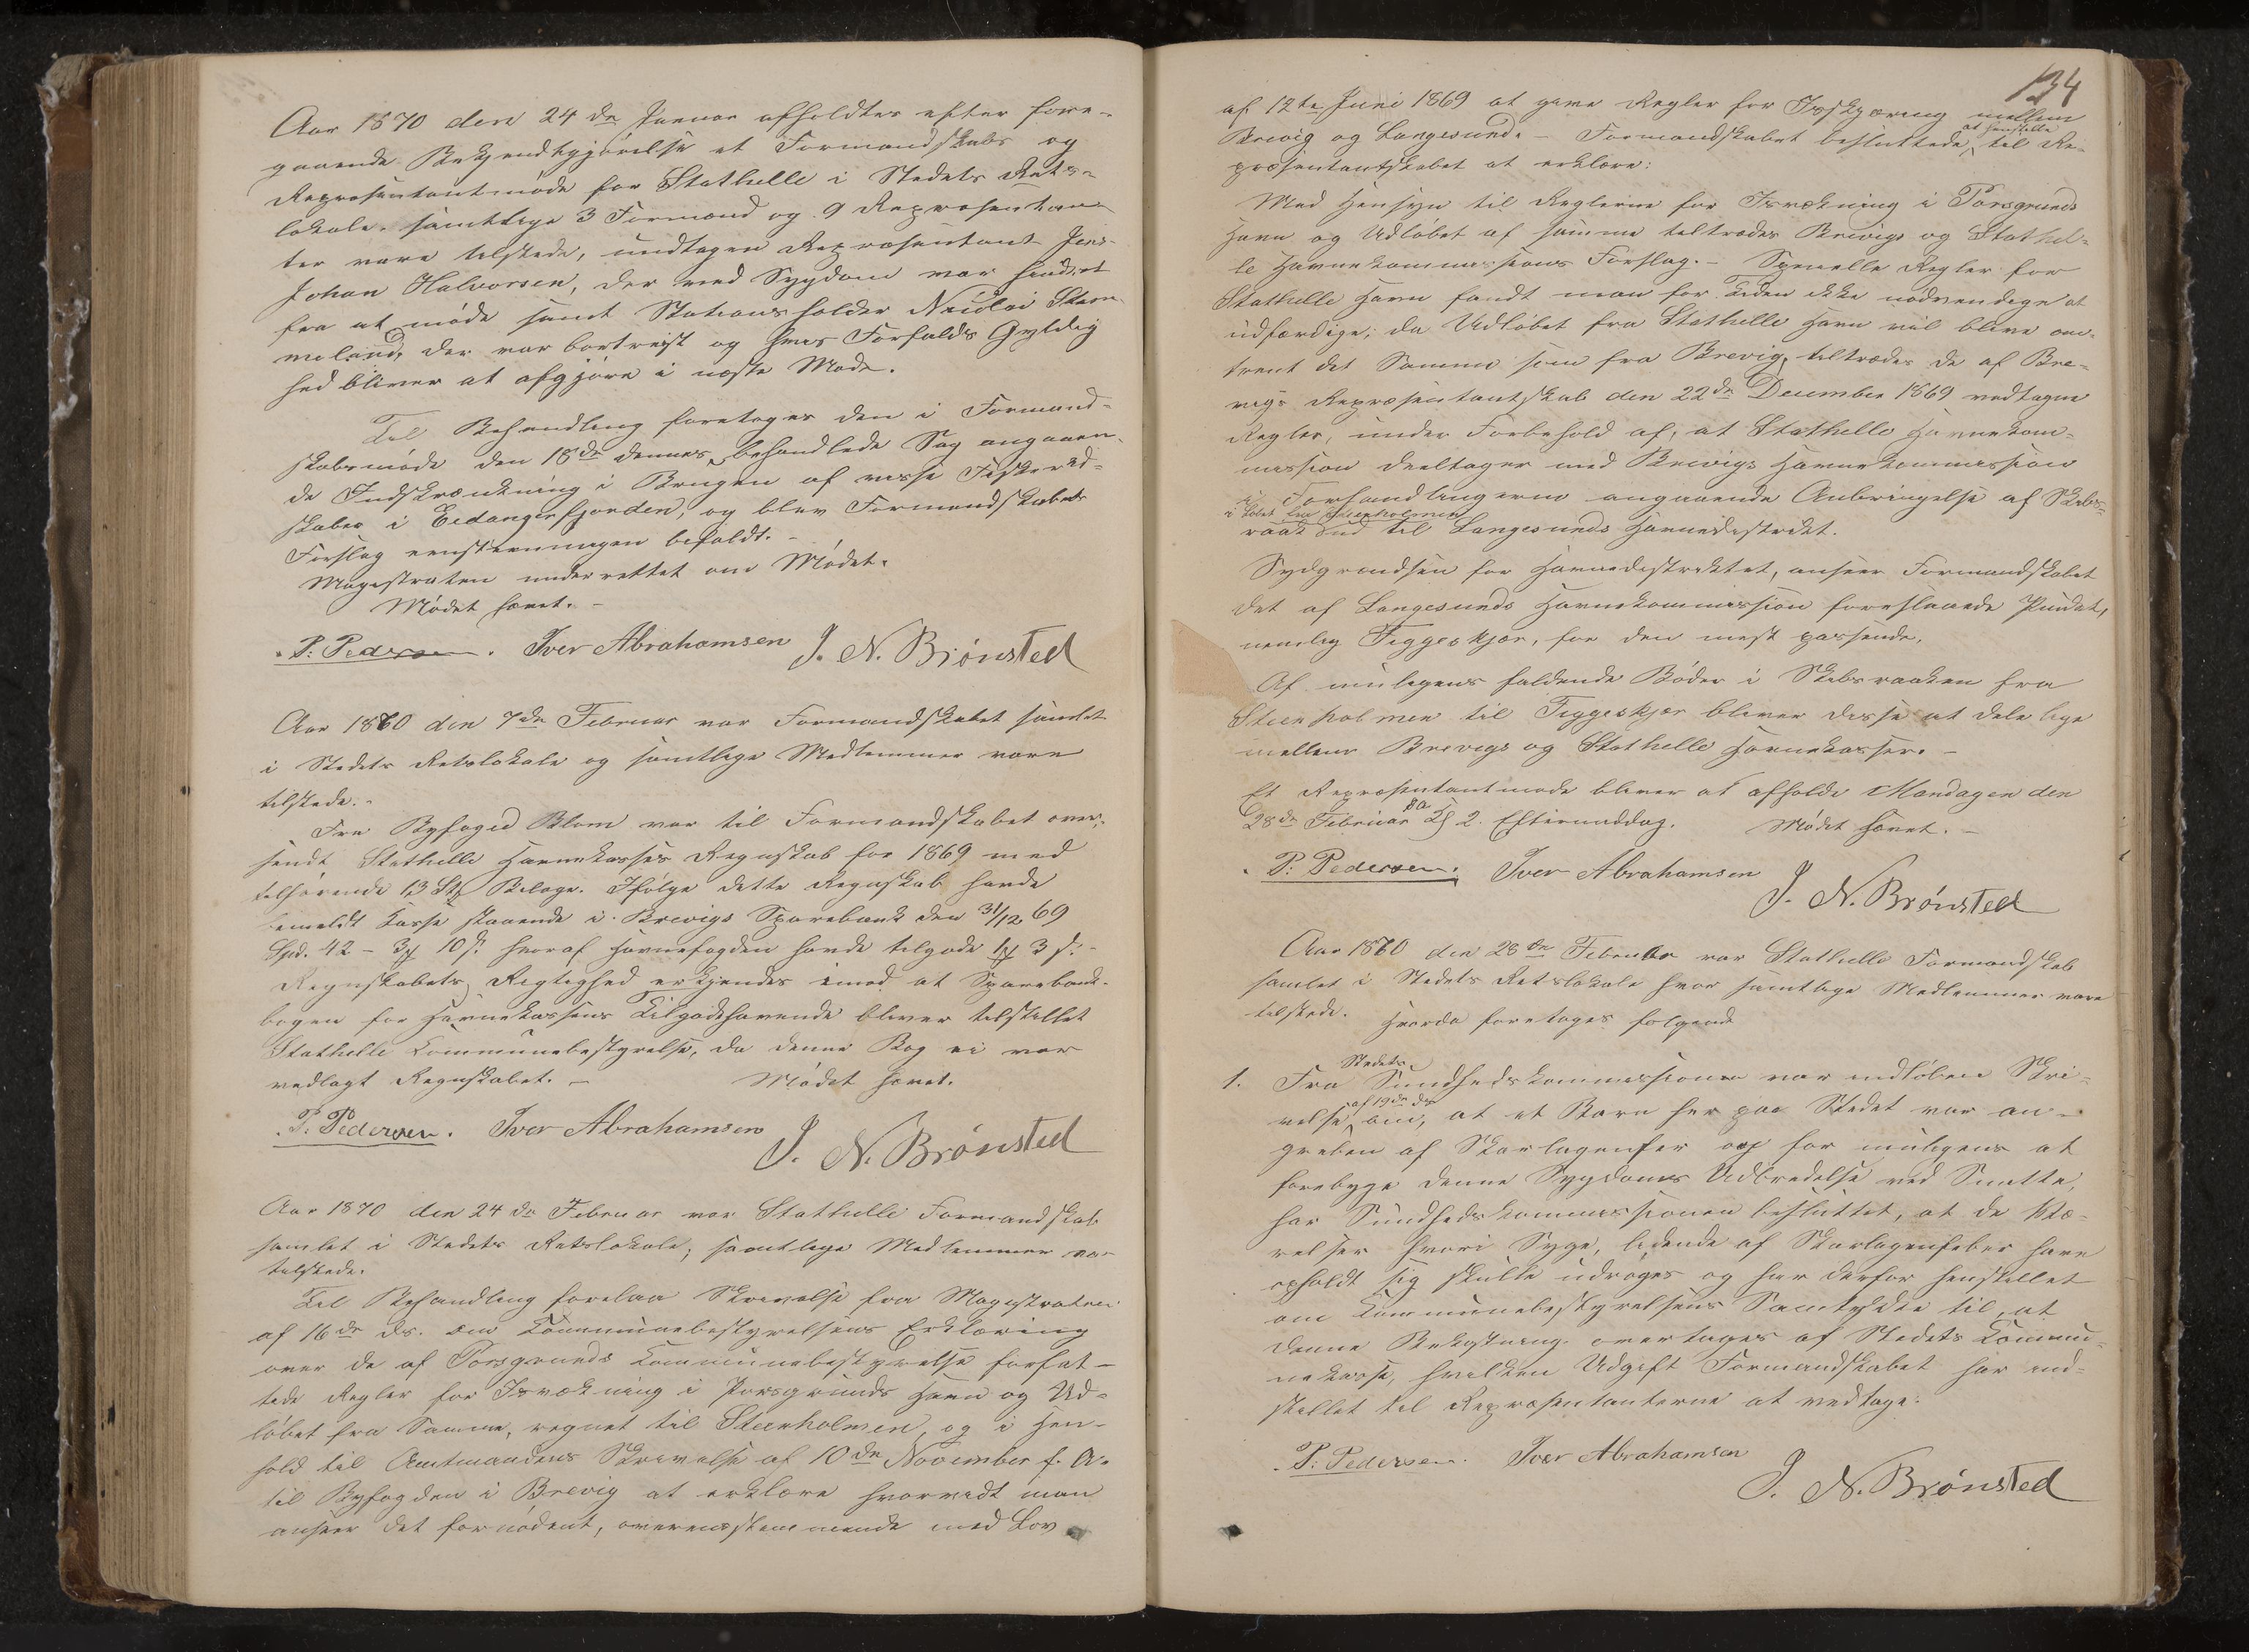 Aar 1870 den 24de Januar afholdtes efter fore-
gaaende Bekjendtgjörelse et Formandskabs og
Repræsentantmöde for Stathelle i Stedets Rets-
lokale. samtlige 3 Formænd og 9 Repræsentan-
ter vare tilstede, undtagen Repræsentant Jens
Johan Halvorsen, der ved Sygdom var hindret
fra at möde samt Stationsholder Nicolai Stam-
meland, der var bortreist og hvis Forfalds Gyldig
hed bliver at afgjöre i næste Möde.
Til Behandling foretoges den i Formand-
skabsmöde den 18de dennes behandlede Sag angaaen-
de Indskrænkning i Brugen af visse Fiskered-
skaber i Eidangerfjorden, og blev Formandskabets
Forslag eenstemmigen bifaldt. -
Magistraten underrettet om Mödet.
Mödet hævet. -
P. Pedersen. Iver Abrahamsen J. N. Brönsted
Aar 1870 den 7de Februar var Formandskabet samlet
i Stedets Retslokale og samtlige Medlemmer vare
tilstede. -
Fra Byfoged Blom var til Formandskabet over-
sendt Stathelle Havnekasses Regnskab for 1869 med
tilhörende 13 Stk Bilage. Ifölge dette Regnskab havde
bemeldt Kasse staaende i Brevigs Sparebank den 31/12 69
Spd. 42 - 3 10 s. hvoraf Havnefogden havde tilgode 1 3 s. -
Regnskabets Rigtighed erkjendes imod at Sparebank-
bogen for Havnekassens Tilgodehavende bliver tilstillet
Stathelle Kommunebestyrelse, da denne Bog ei var
vedlagt Regnskabet. - Mödet hævet.
P. Pedersen. Iver Abrahamsen J. N. Brönsted
Aar 1870 den 24de Februar var Stathelle Formandskab
samlet i Stedets Retslokale, samtlige Medlemmer var
tilstede.
Til Behandling forelaa Skrivelse fra Magistraten
af 16de ds. om Kommunebestyrelsens Erklæring
over de af Porsgrunds Kommunebestyrelse forfat-
tede Regler for Isrækning i Porsgrunds Havn og Ud-
löbet fra Samme, regnet til Steenholmen, og i Hen-
hold til Amtmandens Skrivelse af 10de November f. A.
til Byfogden i Brevig at erklære hvorvidt man
anseer det fornödent, overensstemmende med Lov
134
af 12te Juni 1869 at give Regler for Isskjæring mellem
Brevig og Langesund. - Formandskabet besluttede at henstille til Re-
præsentantskabet at erklære:
Med Hensyn til Reglerne for Isrækning i Porsgrunds
Havn og Udlöbet af samme tiltrædes Brevigs og Stathel-
le Havnekommissions Forslag. - Specielle Regler for
Stathelle Havn fandt man for Tiden ikke nödvendige at
udfærdige; da Udlöbet fra Stathelle Havn vil blive om-
trent det Samme som fra Brevig, tiltrædes de af Bre-
vigs Repræsentantskab den 22de December 1869 vedtagne
Regler, under Forbehold af, at Stathelle Havnekom-
mission deeltager med Brevigs Havnekommission
i Forhandlingerne angaaende Anbringelse af Skibs-
i Löbet fra Steenholmen
raak ud til Langesunds Havnedistrikt.
Sydgrændsen for Havnedistriktet, anseer Formandskabet
det af Langesunds Havnekommission foreslaaede Punkt,
nemlig Figgeskjær, for den mest passende.
Af muligens faldende Böder i Skibsraaken fra
Steenholmen til Figgeskjær bliver disse at dele lige
mellem Brevigs og Stathelle Havnekasser. -
Et Repræsentantmöde bliver at afholde Mandagen den
28de Februar Kl 2. Eftermiddag. Mödet hævet. -
P. Pedersen. Iver Abrahamsen
J. N. Brønsted
Aar 1870 den 28de Februar var Stathelle Formandskab
samlet i Stedets Retslokale hvor samtlige Medlemmer vare
tilstede. Hvorda foretoges fölgende
1. Fra Stedets Sundhedskommission var indlöben Skri-
velse af 19de ds om, at et Barn her paa Stedet var an-
greben af Skarlagenfer og for muligens at
forebyge denne Sygdoms Udbredelse ved Smitte,
har Sundhedskommissionen besluttet, at de Væ-
relser hvori Syge, lidende af Skarlagenfeber have
opholdt sig skulle udröges og har derfor henstillet
om Kommunebestyrelsens Samtykke til, at
denne Bekostning overtages af Stedets Kommu-
nekasse, hvilken Udgift Formandskabet har ind-
stillet til Repræsentanterne at vedtage.
P. Pedersen. Iver Abrahamsen
J. N. Brönsted